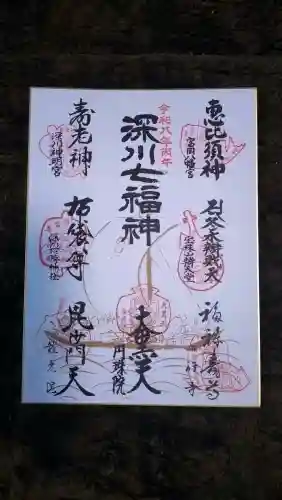 恵比須神
富岡八幡宮
冬木弁財天
福禄寿尊
令和八年丙午
深川七福神
大黒天
円珠院
寿老神
深川神明宮
布袋尊
深川稲荷神社
毘沙門天
龍光院